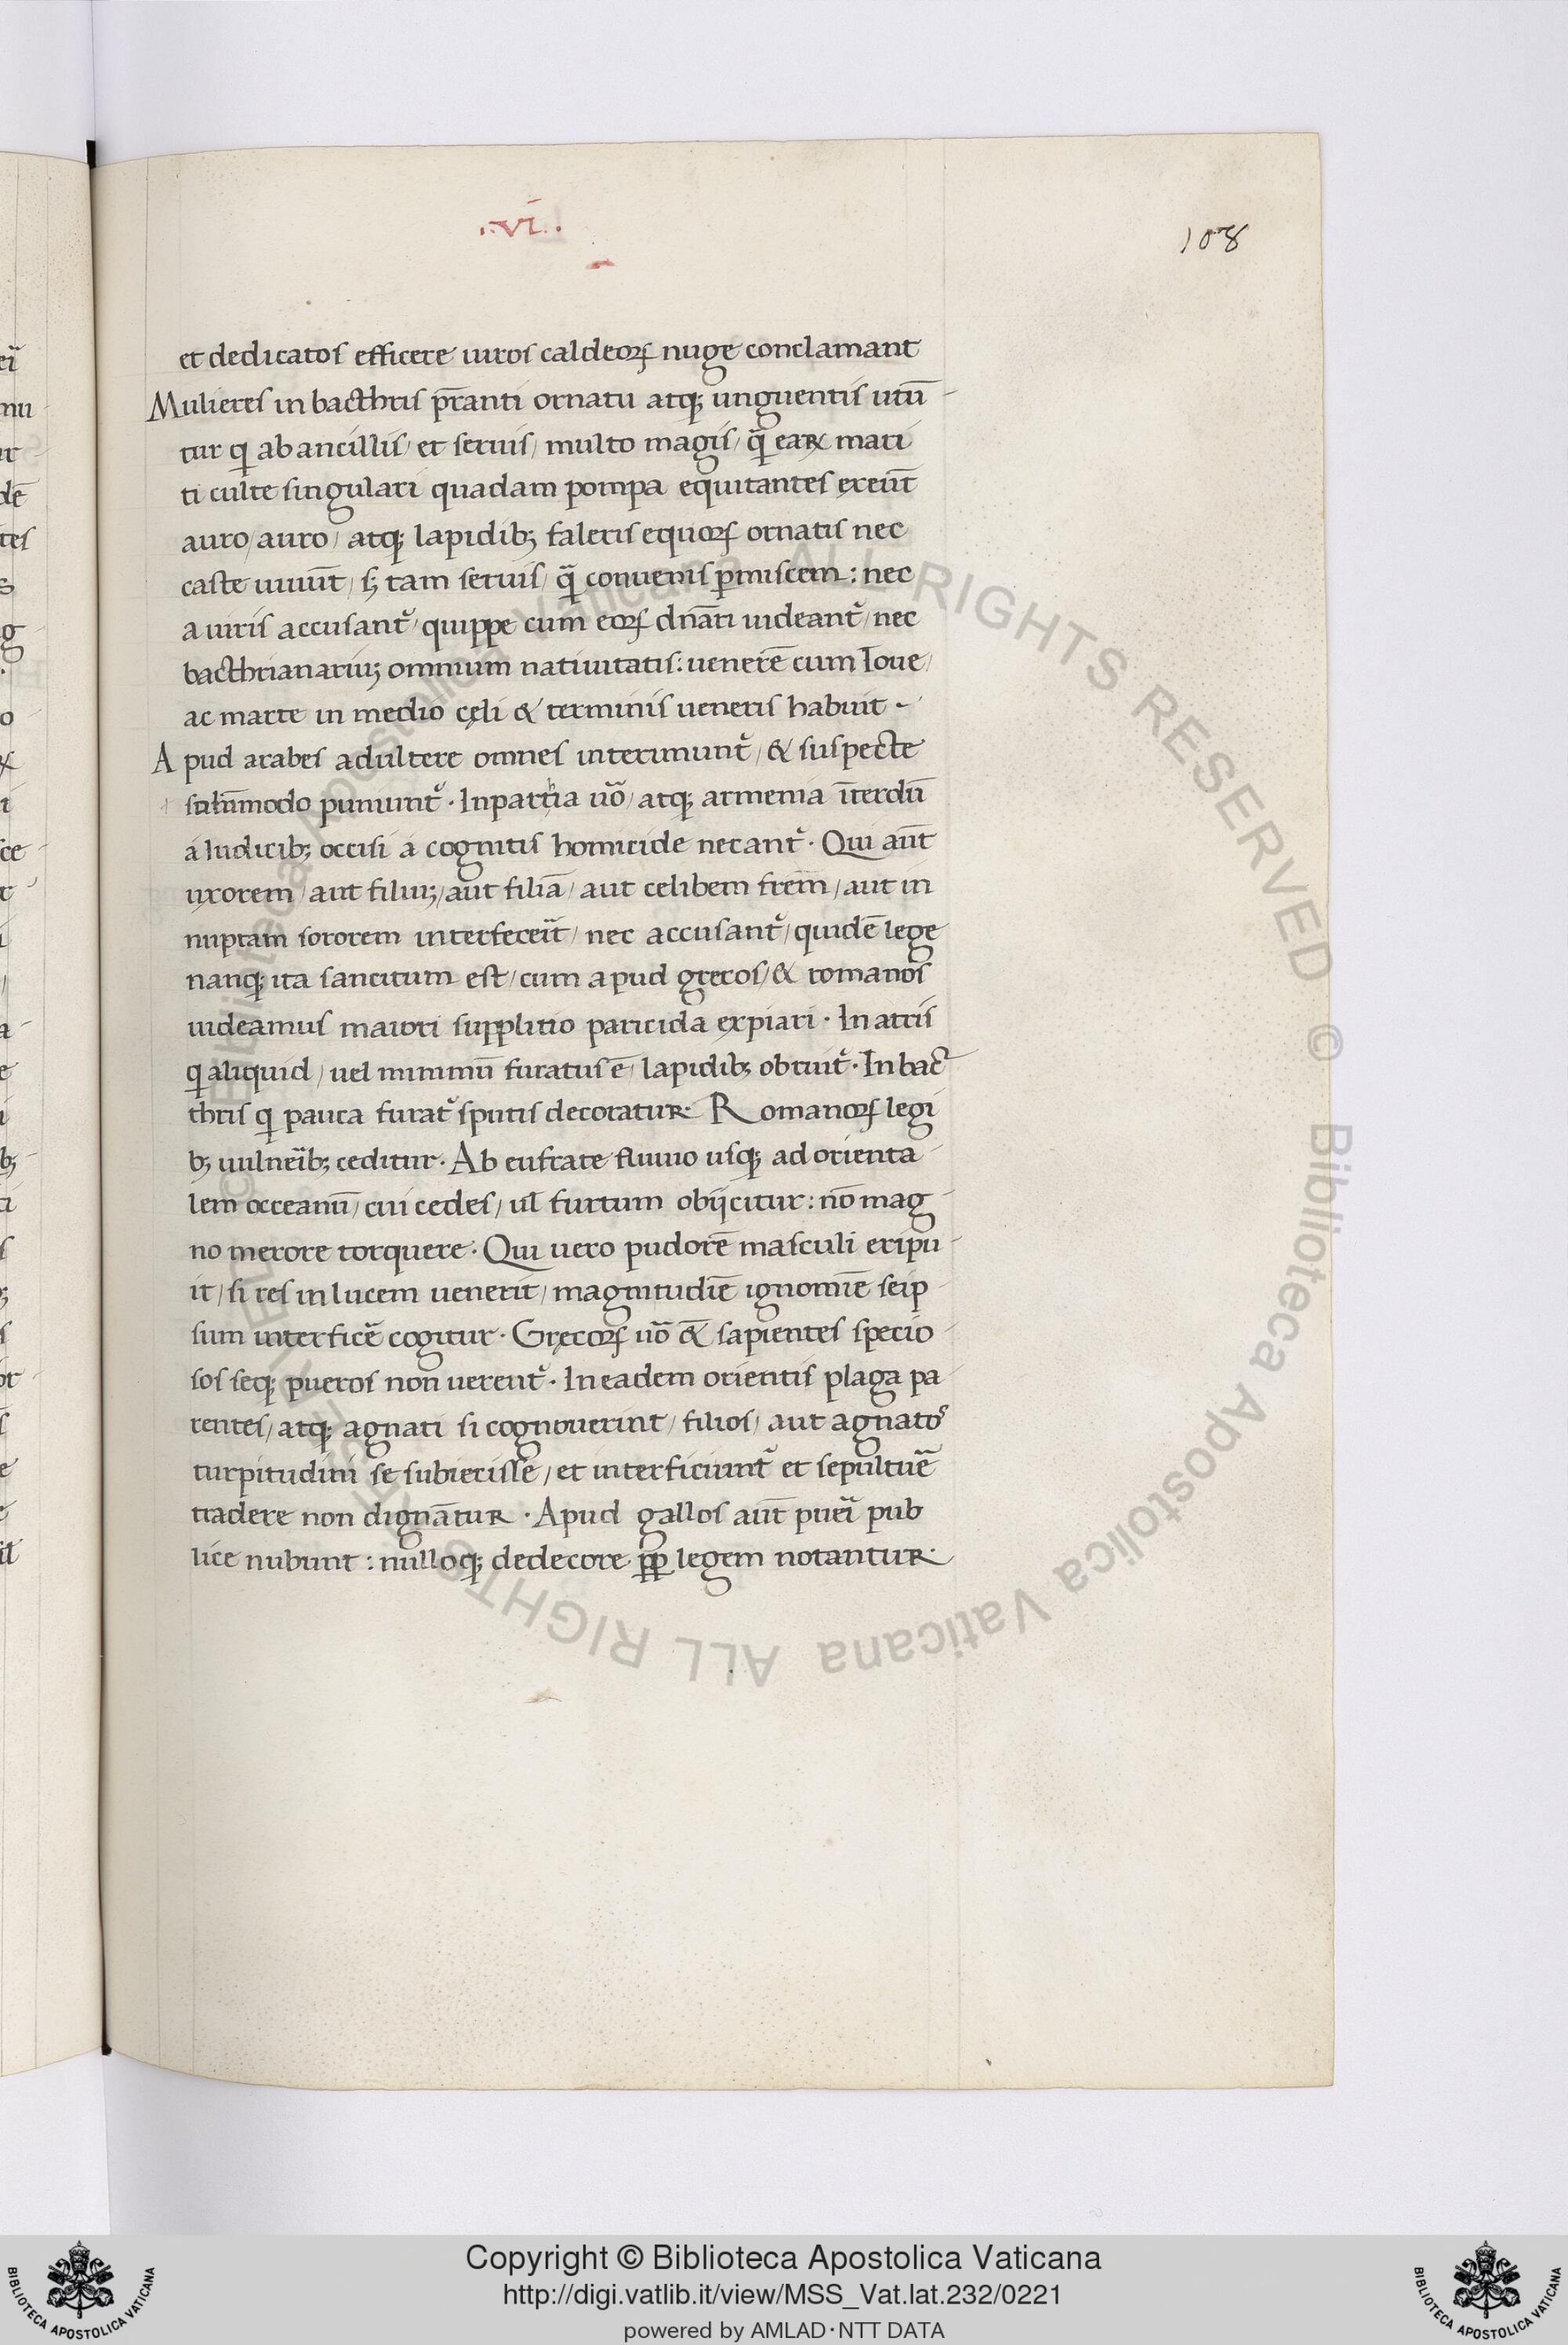 .VI.
108
et dedicatos efficere uiros caldeoꝝ nuge conclamant
Mulieres in bacthris p̄stanti ornatu atq; unguentis utū
tur q̄ ab ancillis / et seruis / multo magis / q̄ȝ eaꝝ mari
ti culte singulari quadam pompa equitantes exeūt
auro / auro / atq; lapidib; faleris equoꝝ ornatis nec
caste uiuūt / sȝ tam seruis / q̄ȝ conuenis ꝑmiscem : nec
a uiris accusant᷑ / quippe cum eoꝝ dn̄ari uideant᷑ / nec
bacthrianariu; omnium natiuitatis : uenerē cum Ioue /
ac marte in medio cęli & terminis ueneris habuit -
Apud arabes adultere omnes interimunt᷑ / & suspecte
solūmodo puniunt᷑ . In parthia uō / atq; armenia īterdū
a Iudicib; occisi a cognitis homicide necant᷑ . Qui aūt
uxorem / aut filiu; / aut filiā / aut celibem frēm / aut in
nuptam sororem interfecer̄it / nec accusant᷑ / quidē lege
nanq; ita sancitum est / cum apud grecos / & romanos
uideamus maiori supplitio paricida expiari . In atris
q̄ aliquid / uel minimū furatus ē / lapidib; obruit᷑ . In bac
thris q̄ pauca furat᷑ sputis decoratur . Romanoꝝ legi
b; uulner̄ib; ceditur . Ab eufrate fluuio usq; ad orienta
lem occeanū / cui cedes / ul̄ furtum obijcitur : nō mag
no merore torquere . Qui uero pudorē masculi eripu
it / si res in lucem uenerit / magnitudīe ignomīe seip
sum interficē cogitur . Gręcoꝝ uō & sapientes specio
sos seq; pueros non uerent᷑ . In eadem orientis plaga pa
rentes / atq; agnati si cognouerint / filios / aut agnatos
turpitudini se subiecisse / et interficiunt᷑ et sepultuā
tradere non dignātur . Apud gallos aūt puer̄i pub
lice nubunt : nulloq; dedecore ꝓpꝑ legem notantur .
Copyright © Biblioteca Apostolica Vaticana
http://digi.vatlib.it/view/MSS_Vat.lat.232/0221
powered by AMLAD·NTT DATA
BIBLIOTECA APOSTOLICA VATICANA
BIBLIOTECA APOSTOLICA VATICANA
© Biblioteca Apostolica Vaticana ALL RIGHTS RESERVED © Biblioteca Apostolica Vaticana ALL RIGHTS RESERVED